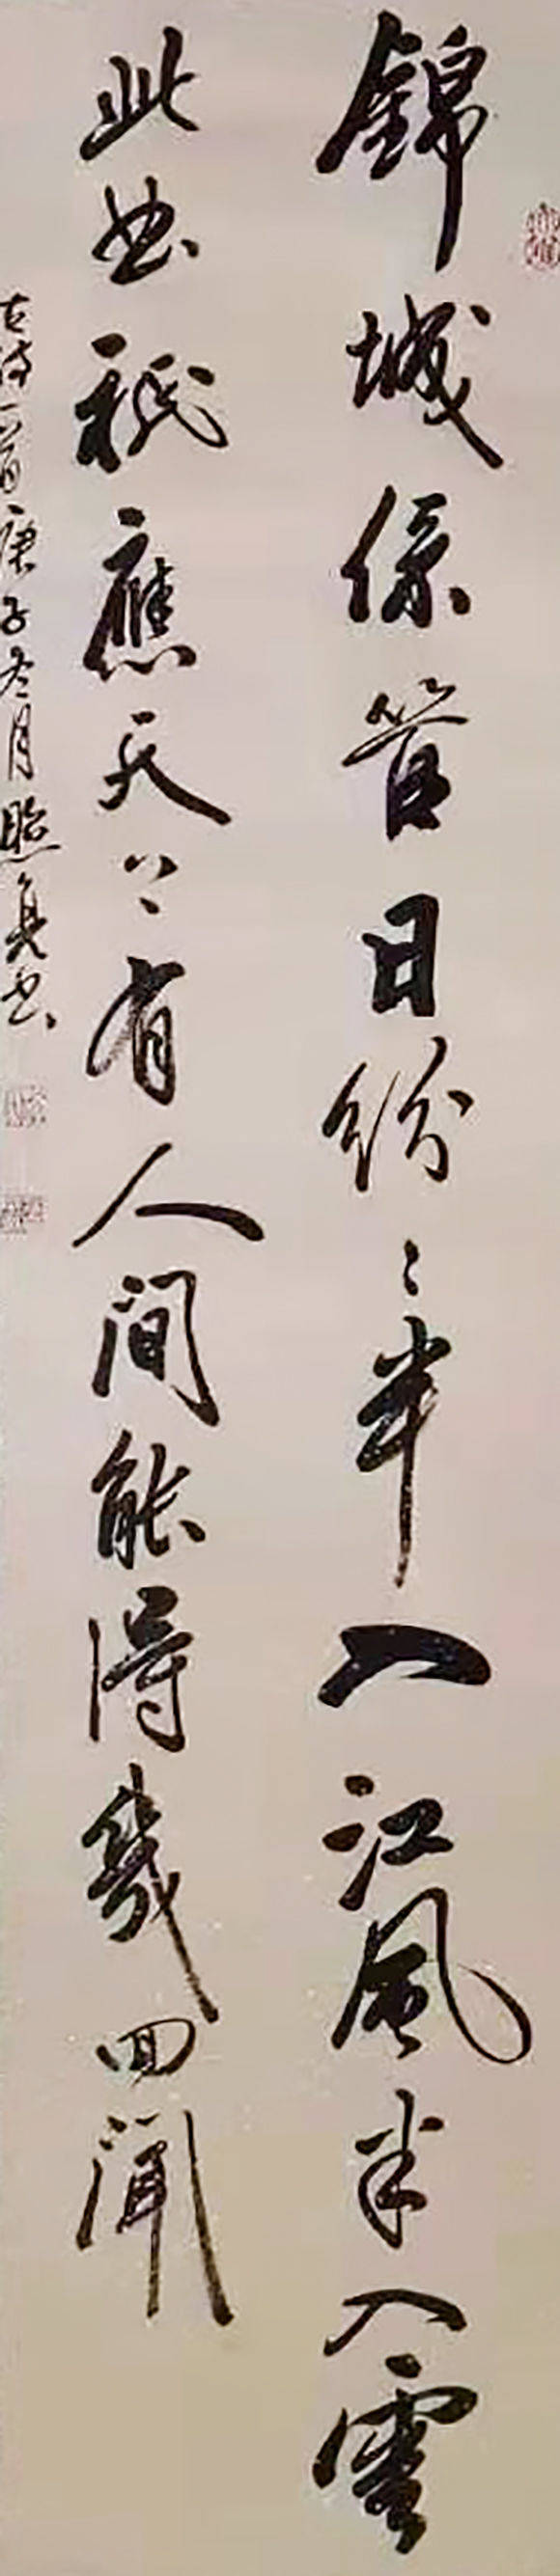 錦城絲管日紛々半入江風半入雲
此曲祇應天上有人間能得幾回聞
古詩一首庚子冬月照書